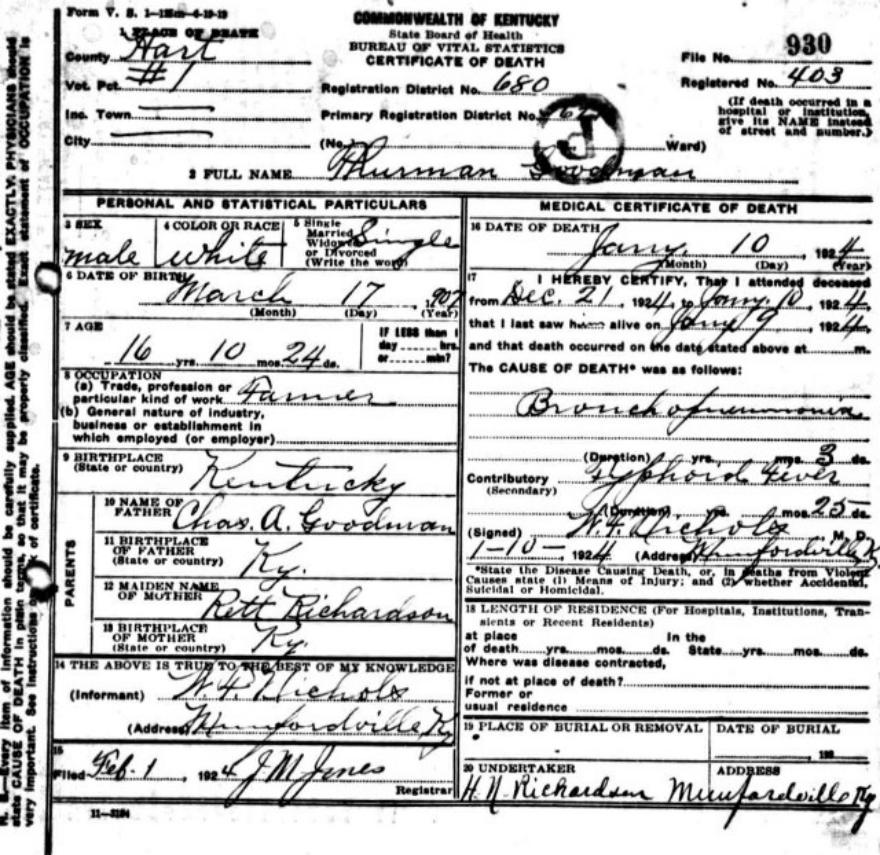 Form V. S. 1-
COMMONWEALTH OF KENTUCKY
State Board of Health
BUREAU OF VITAL STATISTICS
CERTIFICATE OF DEATH
1 PLACE OF DEATH
County Hart
Vot. Pct. #1
Inc. Town
City
Registration District No. 680
Primary Registration District No.
(No. Ward)
File No. 930
Registered No. 403
(If death occurred in a
hospital or institution,
give its NAME instead
of street and number.)
2 FULL NAME Thurman Goodman
PERSONAL AND STATISTICAL PARTICULARS
3 SEX male
4 COLOR OR RACE White
5 Single
Married
Widowed
or Divorced
(Write the word)
Single
6 DATE OF BIRTH
March 17 1907
(Month) (Day) (Year)
7 AGE
16 yrs. 10 mos. 24 ds.
IF LESS than 1
day hrs.
or min?
8 OCCUPATION
(a) Trade, profession or
particular kind of work Farmer
(b) General nature of industry,
business or establishment in
which employed (or employer)
9 BIRTHPLACE
(State or country) Kentucky
PARENTS
10 NAME OF
FATHER Chas. A. Goodman
11 BIRTHPLACE
OF FATHER
(State or country) Ky.
12 MAIDEN NAME
OF MOTHER Rett Richardson
13 BIRTHPLACE
OF MOTHER
(State or country) Ky.
14 THE ABOVE IS TRUE TO THE BEST OF MY KNOWLEDGE
(Informant) W. F. Nichols
(Address) Munfordville Ky
15
Filed Feb. 1, 1924 J M Jones
Registrar
11-3184
MEDICAL CERTIFICATE OF DEATH
16 DATE OF DEATH
Jany. 10, 1924
(Month) (Day) (Year)
17 I HEREBY CERTIFY, That I attended deceased
from Dec. 21 1924, to Jany 10, 1924
that I last saw him alive on Jany 9, 1924
and that death occurred on the date stated above at m.
The CAUSE OF DEATH* was as follows:
Bronchopneumonia
(Duration) yrs. mos. 3 ds.
Contributory Typhoid Fever
(Secondary)
(Duration) yrs. mos. 25 ds.
(Signed) W. F. Nichols M. D.
1-10-, 1924 (Address) Munfordville Ky
*State the Disease Causing Death, or, in deaths from Violent
Causes state (1) Means of Injury; and (2) whether Accidental,
Suicidal or Homicidal.
18 LENGTH OF RESIDENCE (For Hospitals, Institutions, Tran-
sients or Recent Residents)
at place In the
of death yrs. mos. ds. State yrs. mos. ds.
Where was disease contracted,
if not at place of death?
Former or
usual residence
19 PLACE OF BURIAL OR REMOVAL
DATE OF BURIAL
192
20 UNDERTAKER
ADDRESS
H. N. Richardson Munfordville Ky
N. B.—Every item of information should be carefully supplied. AGE should be stated EXACTLY. PHYSICIANS should
state CAUSE OF DEATH in plain terms, so that it may be properly classified. Exact statement of OCCUPATION is
very important. See instructions on back of certificate.